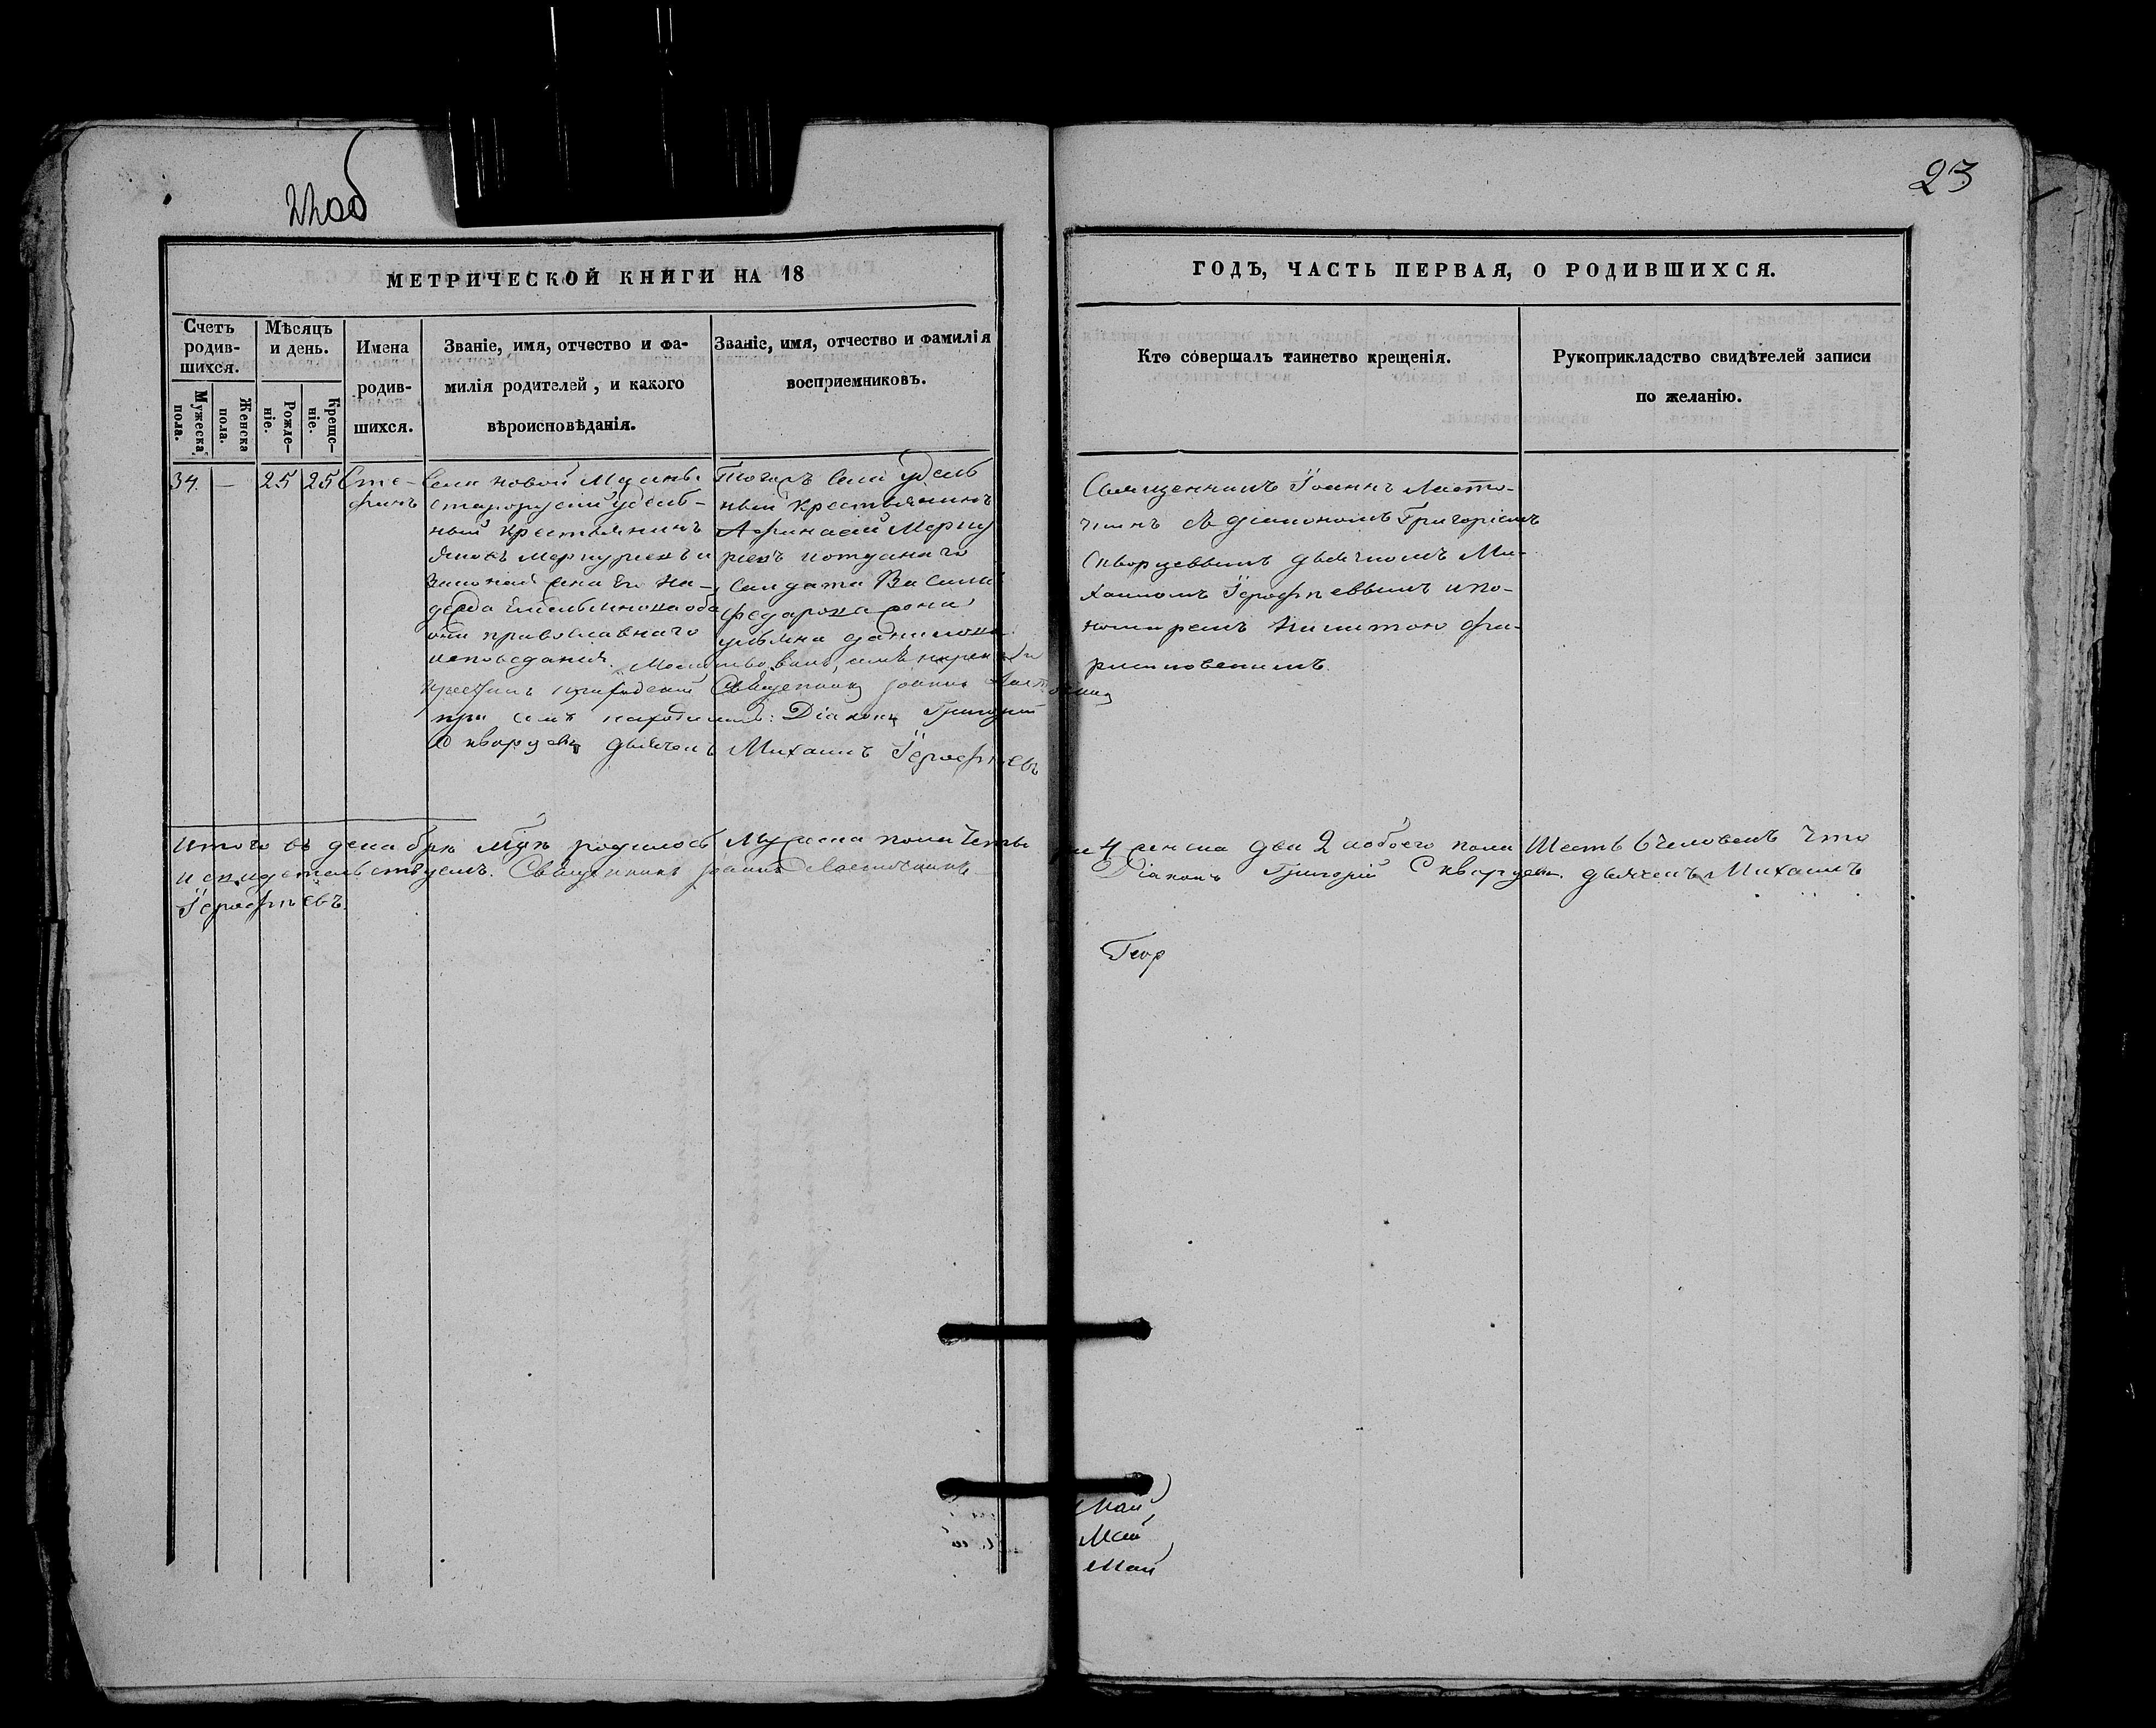 22об
23
МЕТРИЧЕСКОЙ КНИГИ НА 18
ГОДЪ, ЧАСТЬ ПЕРВАЯ, О РОДИВШИХСЯ.
Счетъ родив-шихся.
Мужеска пола.
Женска пола.
Мѣсяцъ и день.
Рожде-ніе.
Креще-ніе.
Имена родив-шихся.
Званіе, имя, отчество и фа-
милія родителей, и какого
вѣроисповѣданія.
Званіе, имя, отчество и фамилія
восприемниковъ.
Кто совершалъ таинство крещенія.
Рукоприкладство свидѣтелей записи
по желанію.
34. — 25 25
Сте-
фанъ
Села новой
удель-
ный крестьянинъ
Меркурьевъ и
законная жена его На-
дежда Емельянова оба
они православнаго
исповедания. Молитвовалъ, имя нарекъ и
крестилъ приходский Священникъ Иоаннъ Ласточкинъ
при семъ находились: Діаконъ Григорий
Скворцевъ дьячекъ Михаилъ Iерофеевъ
Тогожъ села удель
ный крестьянинъ
Афанасий Мерку
рьевъ и отданаго
Салдата Василия
Федарова жена
ульяна данилова
Священникъ Іоаннъ Ласто-
чкинъ съ діакономъ Григоріемъ
Скворцевымъ дьячкомъ Ми-
хаиломъ Iерофеевымъ и по-
номаремъ
Итого въ декабрѣ м̃цѣ родилось Мужеска пола четы
ре 4 женска два 2 а обоего пола шесть 6 человекъ что
и свидетельствуемъ. Священникъ Іоаннъ Ласточкинъ
Діаконъ Григорій Скворцевъ. дьячекъ Михаилъ
Iерофеевъ.
Геор
Май
Май
Май